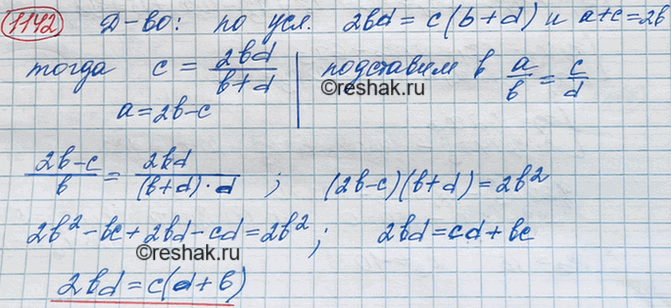 1142 Д-во: по усл. 2bd = c(b+d) и a+c=2b
тогда c = 2bd/(b+d) | подставим в a/b = c/d
©reshak.ru
a=2b-c
(2b-c)/b = 2bd/((b+d)·d) ; (2b-c)(b+d)=2b²
2b²-bc+2bd-cd=2b²; 2bd=cd+bc
©reshak.ru
2bd=c(d+b)